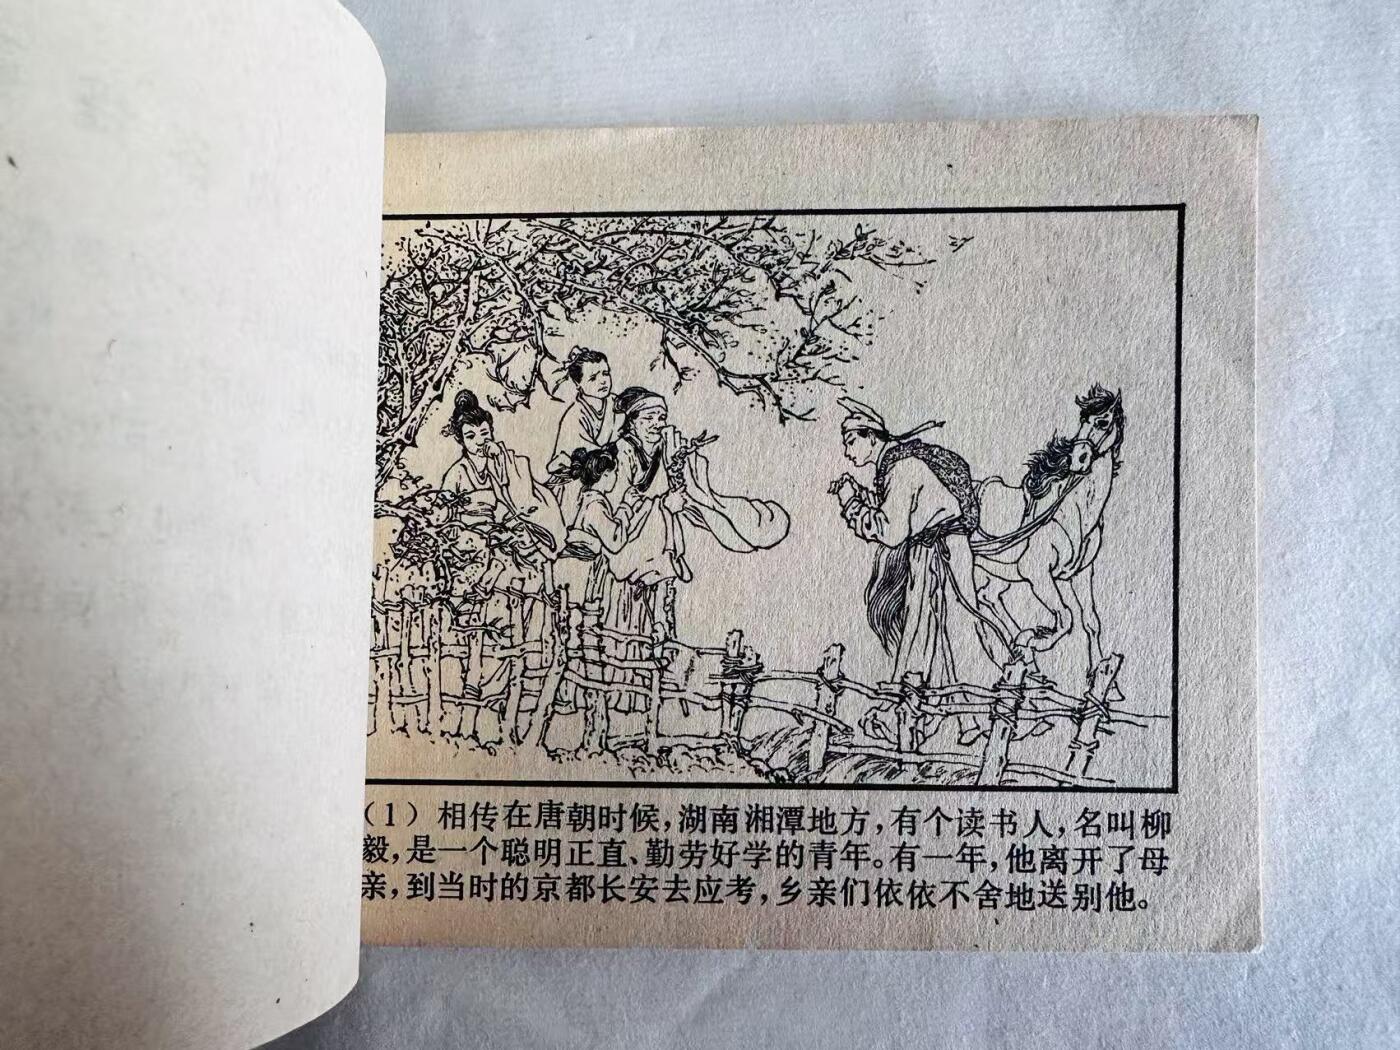 （1）相传在唐朝时候，湖南湘潭地方，有个读书人，名叫柳
毅，是一个聪明正直、勤劳好学的青年。有一年，他离开了母
亲，到当时的京都长安去应考，乡亲们依依不舍地送别他。